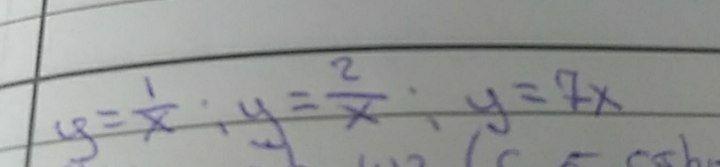 y = 1/x ; y = 2/x ; y = 7x